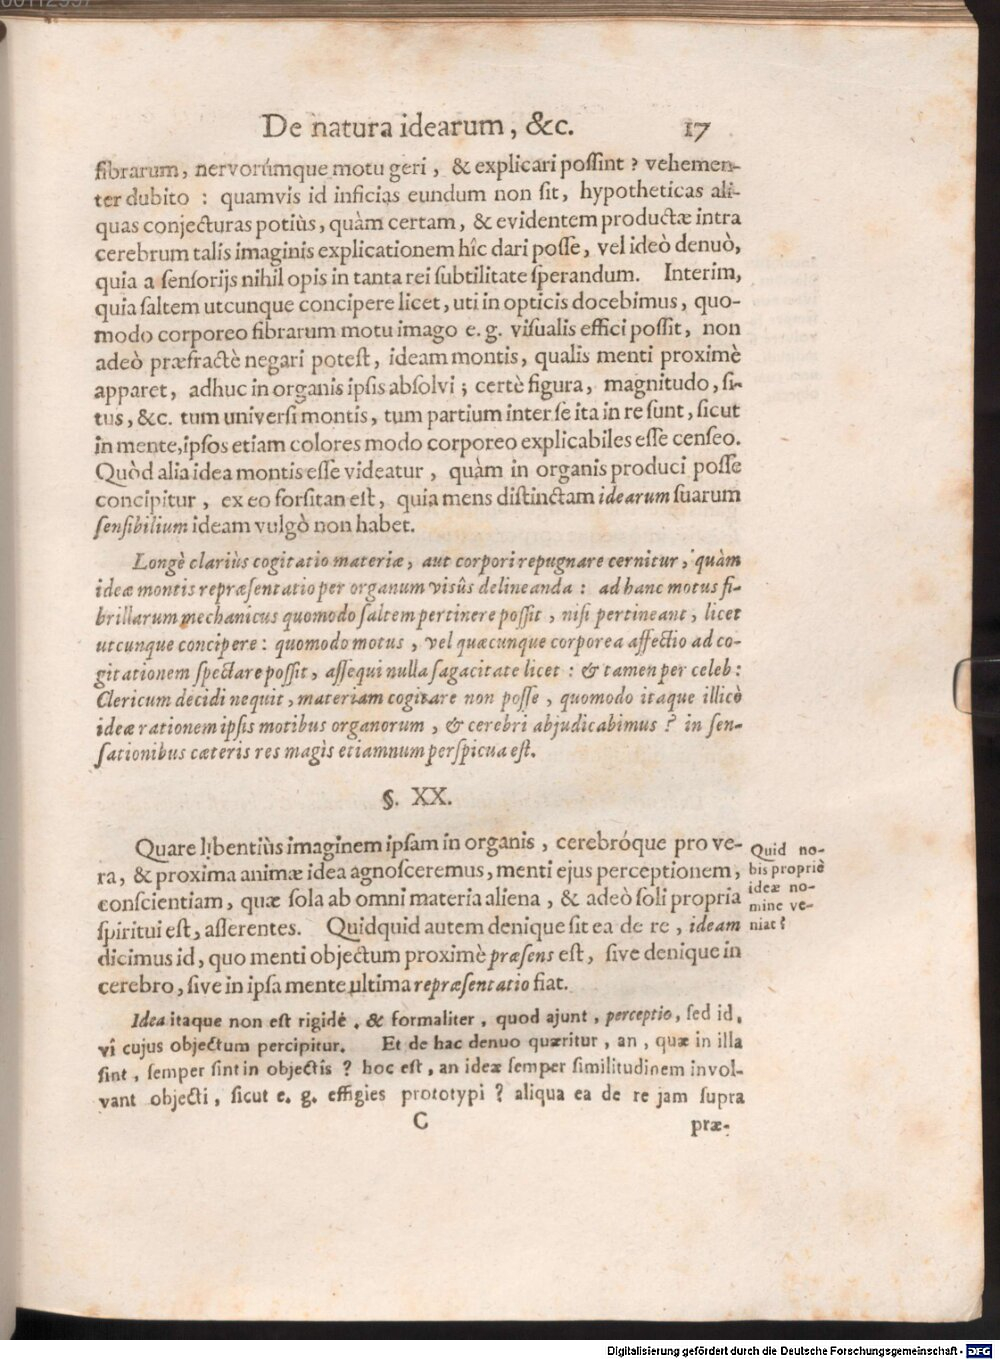 De natura idearum, &c. 17
fibrarum, nervorúmque motu geri, & explicari poſſint? vehemen-
ter dubito : quamvis id inficias eundum non ſit, hypotheticas ali-
quas conjecturas potiùs, quàm certam, & evidentem productæ intra
cerebrum talis imaginis explicationem hîc dari poſſe, vel ideò denuò,
quia a ſenſorijs nihil opis in tanta rei ſubtilitate ſperandum. Interim,
quia ſaltem utcunque concipere licet, uti in opticis docebimus, quo-
modo corporeo fibrarum motu imago e. g. viſualis effici poſſit, non
adeò præfractè negari poteſt, ideam montis, qualis menti proximè
apparet, adhuc in organis ipſis abſolvi; certè figura, magnitudo, ſi-
tus, &c. tum univerſi montis, tum partium inter ſe ita in re ſunt, ſicut
in mente, ipſos etiam colores modo corporeo explicabiles eſſe cenſeo.
Quòd alia idea montis eſſe videatur, quàm in organis produci poſſe
concipitur, ex eo forſitan eſt, quia mens diſtinctam idearum ſuarum
ſenſibilium ideam vulgò non habet.
Longè clariùs cogitatio materiæ, aut corpori repugnare cernitur, quàm
ideæ montis repræſentatio per organum visûs delineanda : ad hanc motus fi-
brillarum mechanicus quomodo ſaltem pertinere poſſit, niſi pertineant, licet
utcunque concipere : quomodo motus, vel quæcunque corporea affectio ad co-
gitationem ſpectare poſſit, aſſequi nulla ſagacitate licet : & tamen per celeb:
Clericum decidi nequit, materiam cogitare non poſſe, quomodo itaque illicò
ideæ rationem ipſis motibus organorum, & cerebri abjudicabimus ? in ſen-
ſationibus cæteris res magis etiamnum perſpicua eſt.
§. XX.
Quare libentiùs imaginem ipſam in organis, cerebróque pro ve-
ra, & proxima animæ idea agnoſceremus, menti ejus perceptionem,
conſcientiam, quæ ſola ab omni materia aliena, & adeò ſoli propria
ſpiritui eſt, aſſerentes. Quidquid autem denique ſit ea de re, ideam
dicimus id, quo menti objectum proximè præſens eſt, ſive denique in
cerebro, ſive in ipſa mente ultima repræſentatio fiat.
Quid no-
bis propriè
ideæ no-
mine ve-
niat?
Idea itaque non eſt rigidè, & formaliter, quod ajunt, perceptio, ſed id,
vî cujus objectum percipitur. Et de hac denuo quæritur, an, quæ in illa
ſint, ſemper ſint in objectis ? hoc eſt, an ideæ ſemper ſimilitudinem invol-
vant objecti, ſicut e. g. effigies prototypi ? aliqua ea de re jam ſupra
C præ-
Digitalisierung gefördert durch die Deutsche Forschungsgemeinschaft - DFG